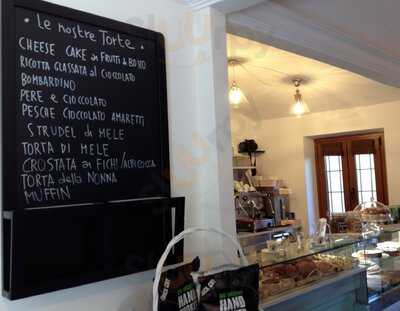 Le nostre Torte
CHEESE CAKE ai FRUTTI di BOSCO
RICOTTA GLASSATA al CIOCCOLATO
BOMBARDINO
PERE e CIOCCOLATO
PESCHE CIOCCOLATO AMARETTI
STRUDEL di MELE
TORTA DI MELE
CROSTATA ai FICHI/ALBICOCCA
TORTA della NONNA
MUFFIN
HAND
HAND